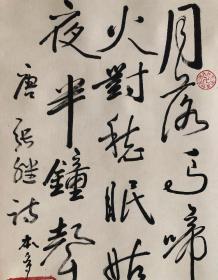 月落烏啼
火對愁眠姑
夜半鐘聲
唐張繼詩